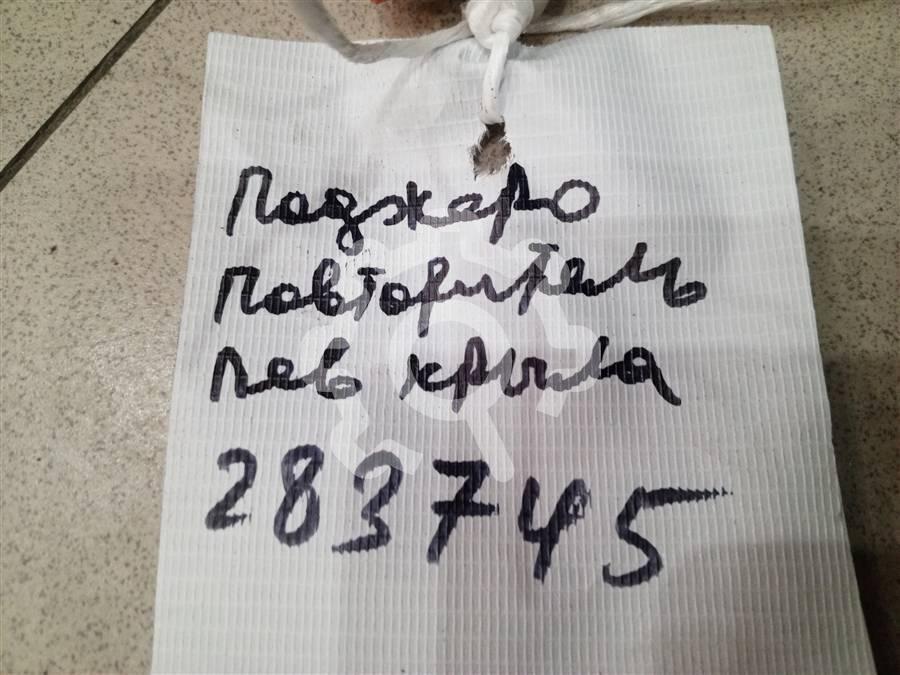 Паджеро
Повторитель
Лев крыла
283745